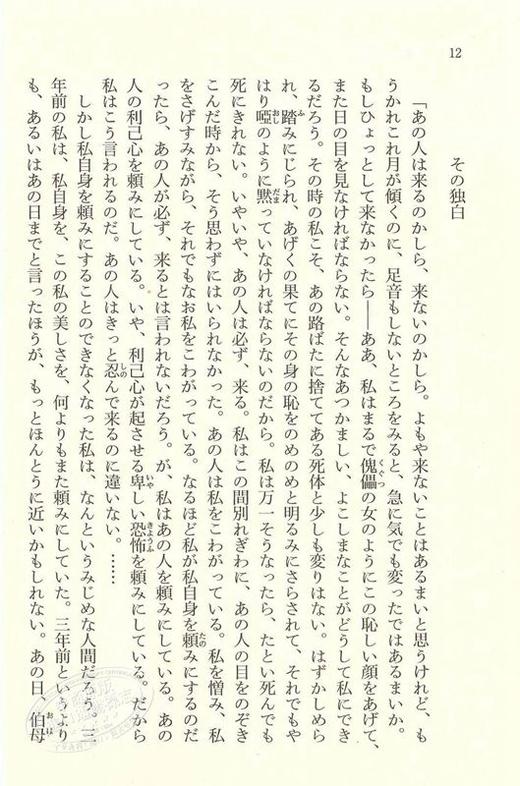 12
その独白
「あの人は来るのかしら、来ないのかしら。よもや来ないことはあるまいと思うけれど、も
うかれこれ月が傾くのに、足音もしないところをみると、急に気でも変ったではあるまいか。
もしひょっとして来なかったら――ああ、私はまるで傀儡の女のようにこの恥しい顔をあげて、
また日の目を見なければならない。そんなあつかましい、よこしまなことがどうして私にでき
るだろう。その時の私こそ、あの路ばたに捨ててある死体と少しも変りはない。はずかしめら
れ、踏みにじられ、あげくの果てにその身の恥をのめのめと明るみにさらされて、それでもや
はり啞のように黙っていなければならないのだから。私は万一そうなったら、たとい死んでも
死にきれない。いやいや、あの人は必ず、来る。私はこの間別れぎわに、あの人の目をのぞき
こんだ時から、そう思わずにはいられなかった。あの人は私をこわがっている。私を憎み、私
をさげすみながら、それでもなお私をこわがっている。なるほど私が私自身を頼みにするのだ
ったら、あの人が必ず、来るとは言われないだろう。が、私はあの人を頼みにしている。あの
人の利己心を頼みにしている。いや、利己心が起させる卑しい恐怖を頼みにしている。だから
私はこう言われるのだ。あの人はきっと忍んで来るのに違いない。……
しかし私自身を頼みにすることのできなくなった私は、なんというみじめな人間だろう。三
年前の私は、私自身を、この私の美しさを、何よりもまた頼みにしていた。三年前というより
も、あるいはあの日までと言ったほうが、もっとほんとうに近いかもしれない。あの日、伯母